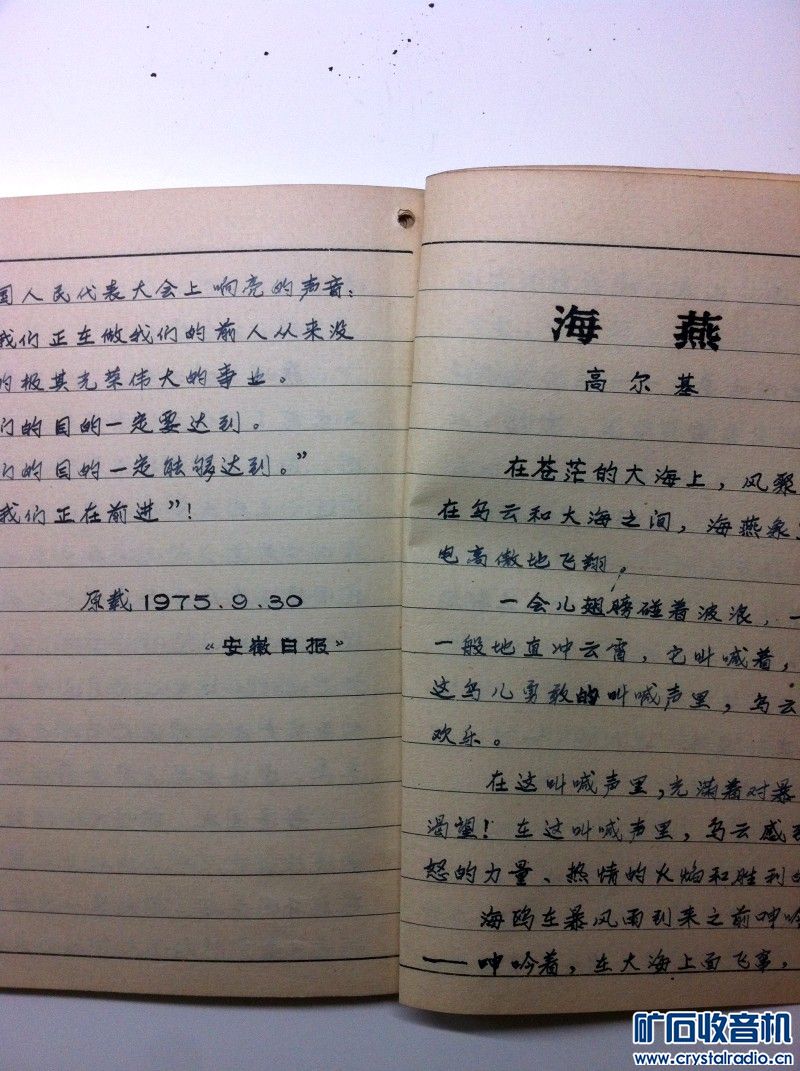 国人民代表大会上响亮的声音：
我们正在做我们的前人从来没
的极其光荣伟大的事业。
们的目的一定要达到。
们的目的一定能够达到。”
我们正在前进”！
原载1975.9.30
“安徽日报”
海燕
高尔基
在苍茫的大海上，风聚
在乌云和大海之间，海燕象
电高傲地飞翔。
一会儿翅膀碰着波浪，一
一般地直冲云霄，它叫喊着，
这鸟儿勇敢的叫喊声里，乌云
欢乐。
在这叫喊声里，充满着对暴
渴望！在这叫喊声里，乌云感
怒的力量、热情的火焰和胜利的
海鸥在暴风雨到来之前呻吟
——呻吟着，在大海上面飞窜，
矿石收音机
www.crystalradio.cn